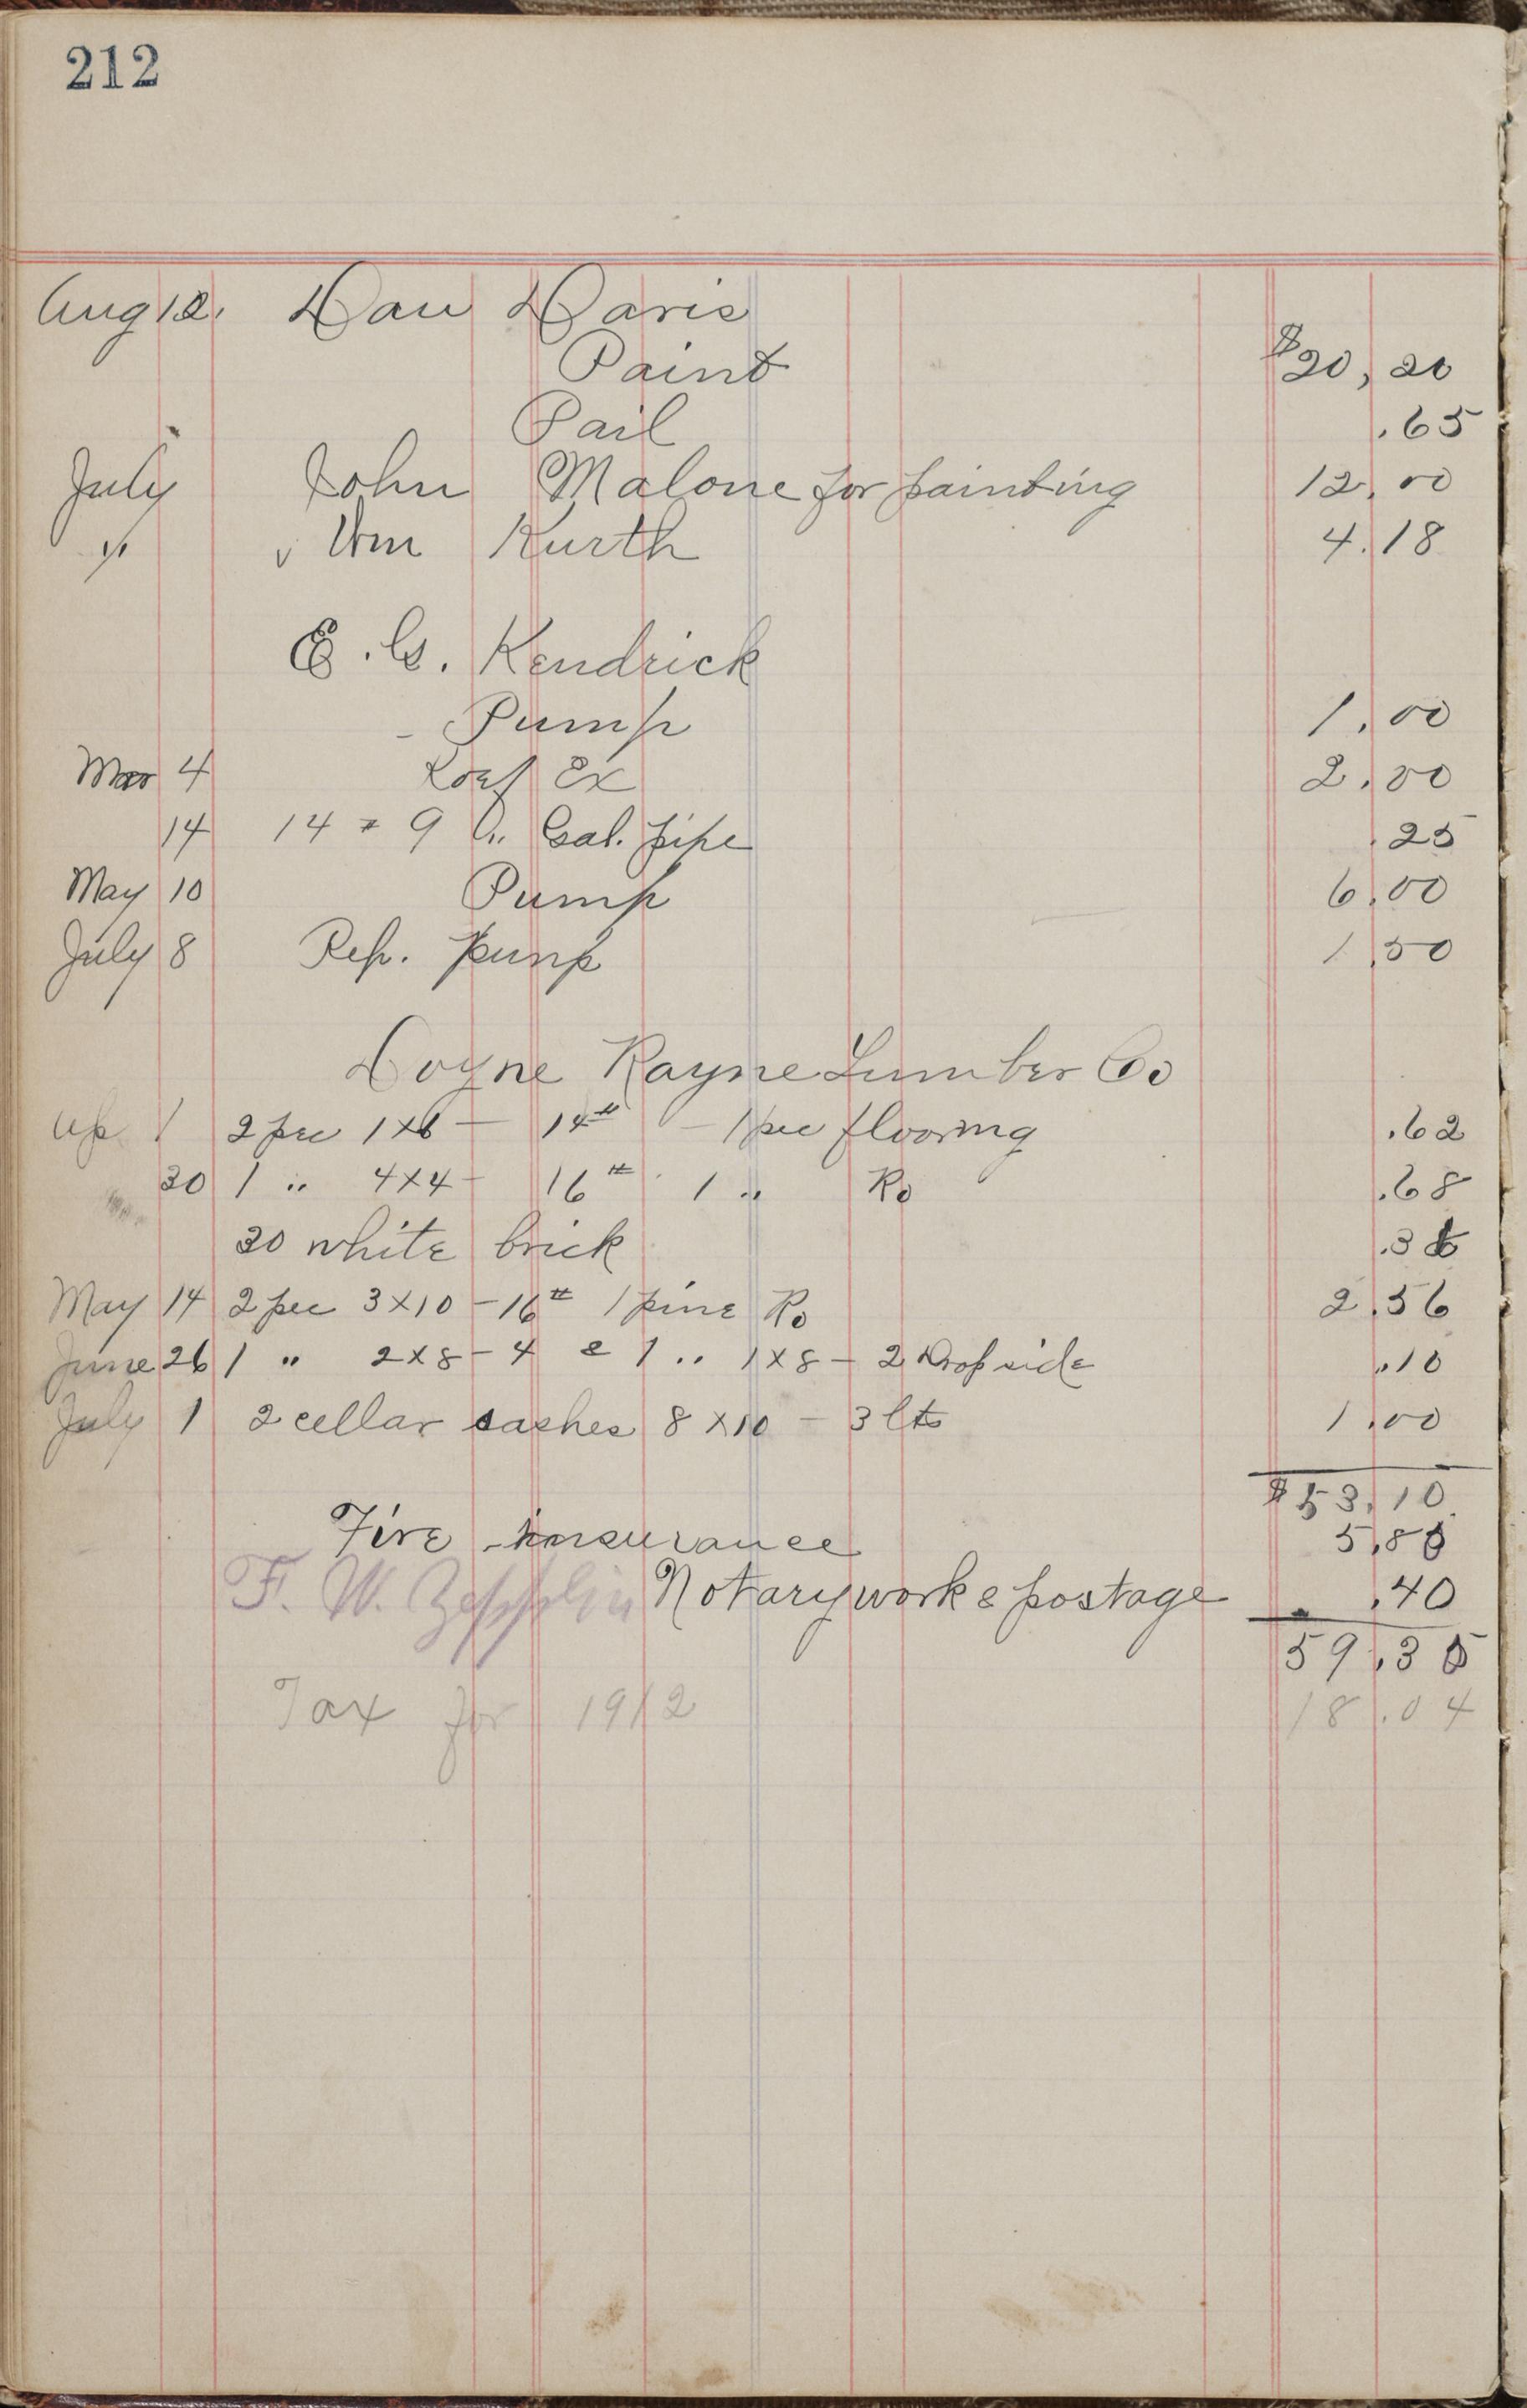 212
Aug 12. Dan Davis
Paint $20,20
Pail .65
July John Malone for painting 12.00
" v Wm Kurth 4.18
E. G. Kendrick
- Pump 1.00
Mar 4 Ex 2.00
14 14 9 Gal. pipe .25
May 10 Pump 6.00
July 8 Rep. pump 1.50
Doyne Rayne Lumber Co
Ap 1 2 pec 1x6 - 14 ft - 1 pec flooring .62
30 1 " 4x4 - 16 ft 1 " Ro .68
30 white brick .36
May 14 2 pec 3x10 - 16 ft 1 pine Ro 2.56
June 26 1 " 2x8 - 4 & 1 " 1x8 - 2 Drop side .10
July 1 2 cellar sashes 8x10 - 3 lts 1.00
$53.10
Fire insurance 5.80
F. W. Zepplin Notary work & postage .40
59.35
Tax for 1912 18.04